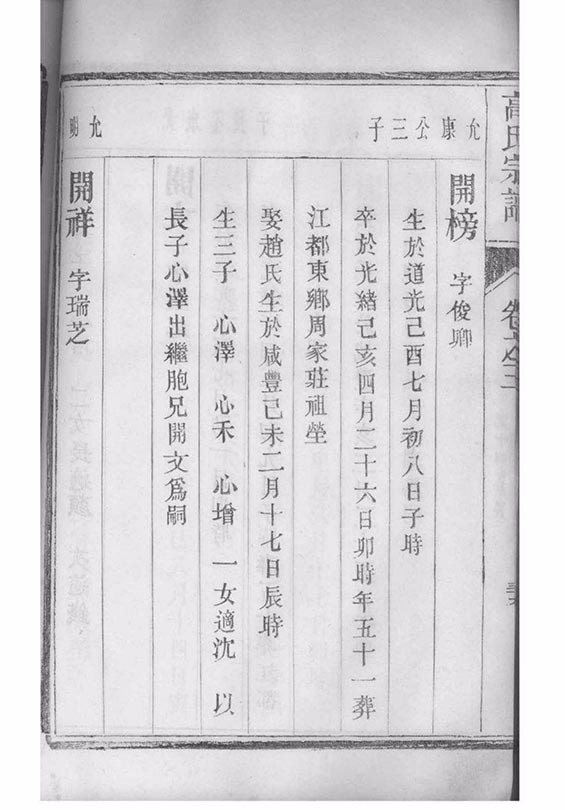 高氏宗譜
卷之三
允康公三子
開榜 字俊卿
生於道光己酉七月初八日子時
卒於光緒己亥四月二十六日卯時年五十一葬
江都東鄉周家莊祖塋
娶趙氏生於咸豐己未二月十七日辰時
生三子 心澤 心禾 心增 一女適沈 以
長子心澤出繼胞兄開文爲嗣
允
開祥 字瑞芝